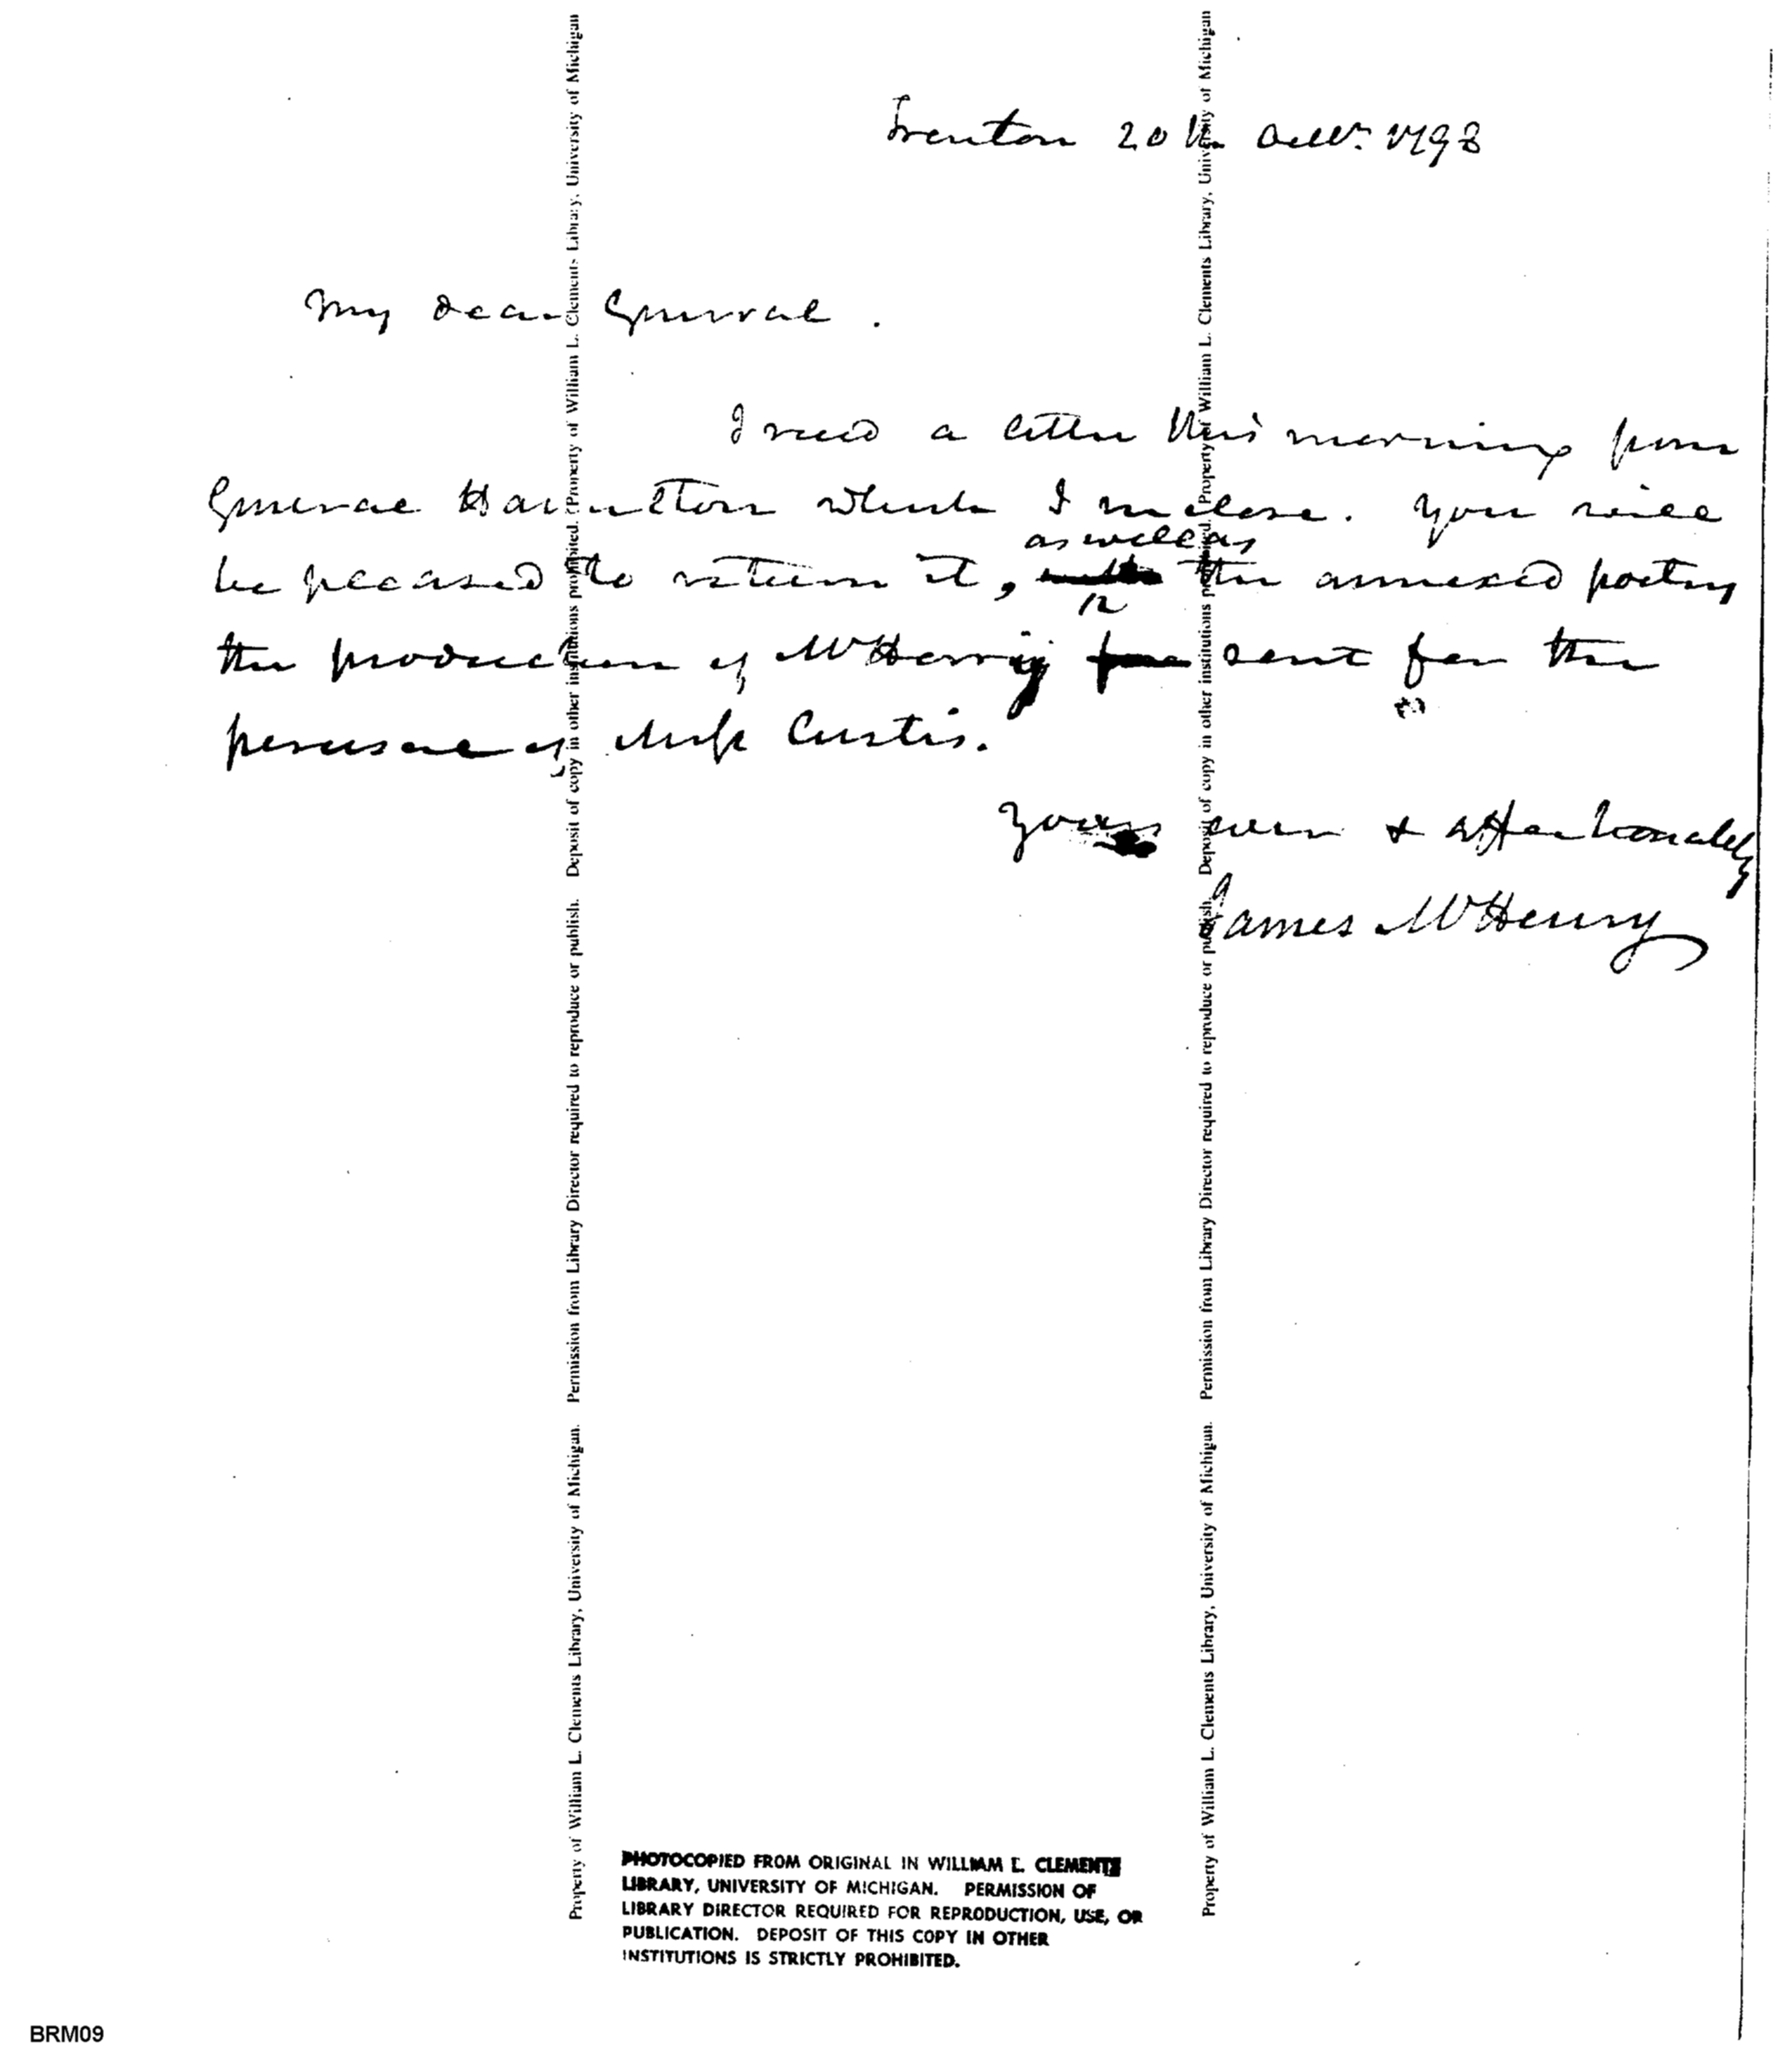 Trenton 20th Octbr. 1798
My dear General.
I recd a letter this morning from
General Hamilton which I inclose. You will
as well as
be pleased to return it, the annexed poetry
the production of McHenry sent for the
perusal of Miss Custis.
Yours ever & affectionately
James McHenry
Property of William L. Clements Library, University of Michigan. Permission from Library Director required to reproduce or publish. Deposit of copy in other institutions prohibited. Property of William L. Clements Library, University of Michigan
Property of William L. Clements Library, University of Michigan. Permission from Library Director required to reproduce or publish. Deposit of copy in other institutions prohibited. Property of William L. Clements Library, University of Michigan
PHOTOCOPIED FROM ORIGINAL IN WILLIAM L. CLEMENTS
LIBRARY, UNIVERSITY OF MICHIGAN. PERMISSION OF
LIBRARY DIRECTOR REQUIRED FOR REPRODUCTION, USE, OR
PUBLICATION. DEPOSIT OF THIS COPY IN OTHER
INSTITUTIONS IS STRICTLY PROHIBITED.
BRM09